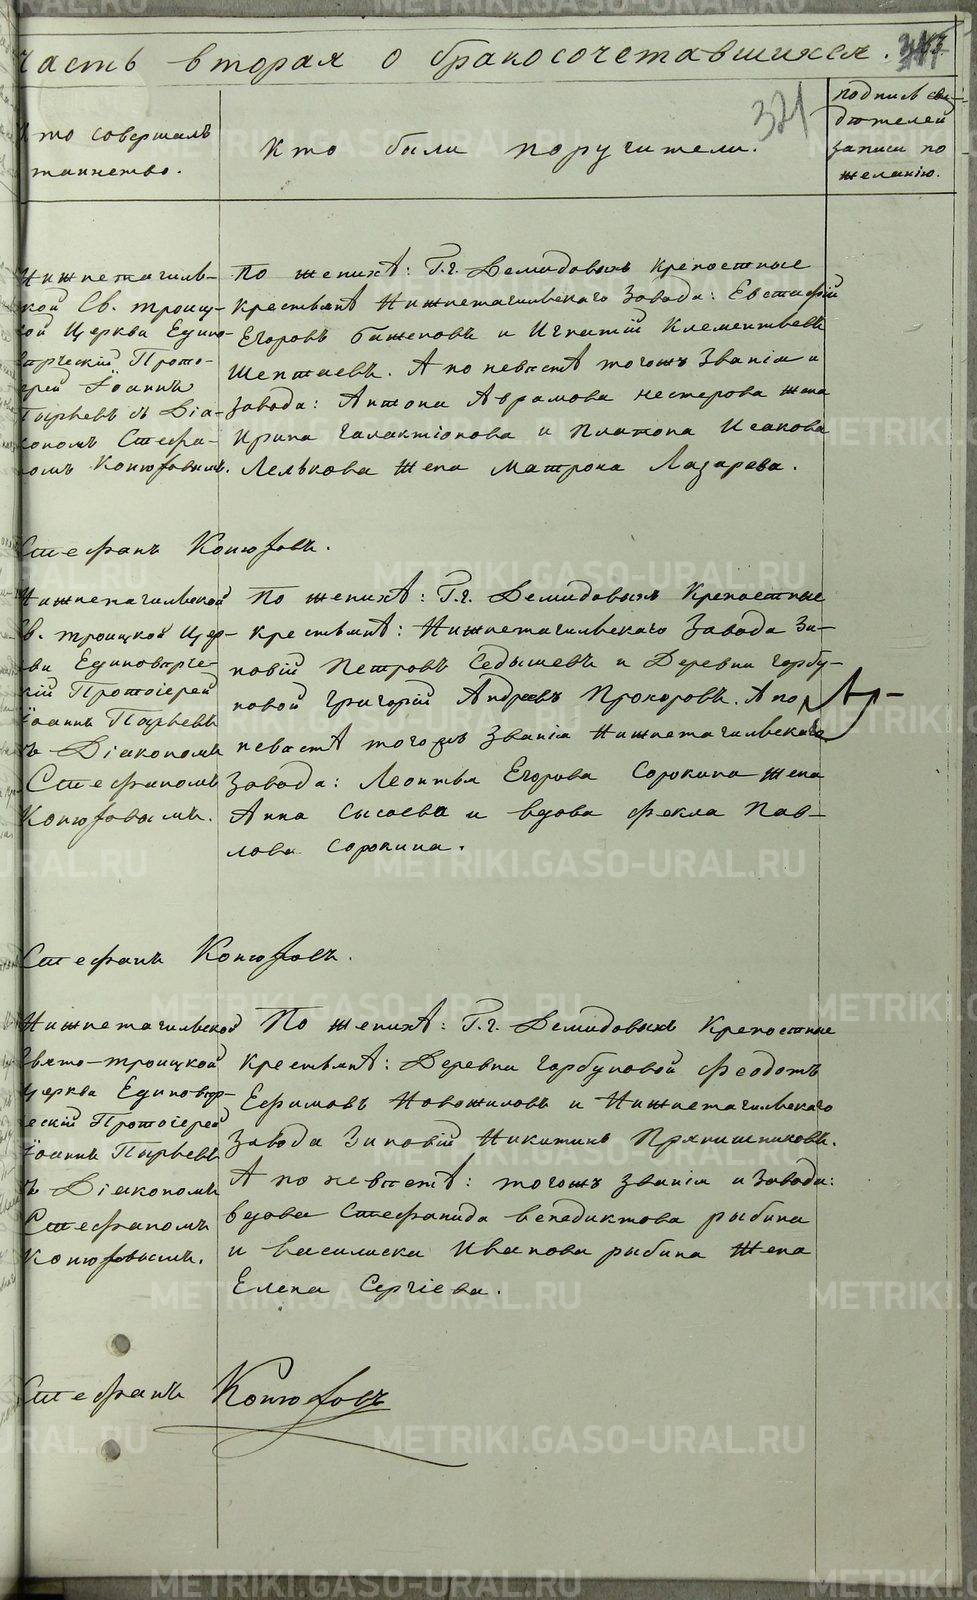 часть вторая о бракосочетавшихся.
321
то совершалъ
таинство.
Кто были поручители.
подпись сви-
дѣтелей
записи по
желанію.
Нижнетагиль-
кой Св. Троиц-
ой Церкви Едино-
вѣрческій Прото-
ерей Іоаннъ
Пырьевъ съ Діа-
кономъ Стефа-
омъ Конюховымъ.
По женихѣ: Г.г. Демидовыхъ крепостные
крестьянѣ Нижнетагильскаго Завода: Евстафій
Егоровъ Баженовъ и Игнатій Клементьевъ
Шептаевъ. А по невѣстѣ тогожъ Званія и
завода: Антона Аврамова Нестерова жена
Ирина Галактіонова и Платона Исакова
Лелькова жена Матрона Лазарева.
Стефанъ Конюховъ.
Нижнетагильской
в. Троицкой Цер-
ви Единовѣрче-
кій Протоіерей
Іоаннъ Пырьевъ
ъ Діакономъ
Стефаномъ
Конюховымъ.
По женихѣ: Г.г. Демидовыхъ Крепостные
крестьянѣ: Нижнетагильскаго Завода Зи-
новій Петровъ Седышевъ и Деревни Горбу-
новой Григорій Андреевъ Прохоровъ. А по
невѣстѣ тогожъ Званія Нижнетагильскаго
Завода: Леонтья Егорова Сорокина жена
Анна Сысоева и вдова Фекла Пав-
лова Сорокина.
Стефанъ Конюховъ.
Нижнетагильской
Свято-Троицкой
Церкви Единовѣр-
ческій Протоіерей
Іоаннъ Пырьевъ
ъ Діакономъ
Стефаномъ
Конюховымъ.
По женихѣ: Г.г. Демидовыхъ Крепостные
Крестьянѣ: Деревни Горбуновой Феодотъ
Ефимовъ Новожиловъ и Нижнетагильскаго
Завода Зиновій Никитинъ Прянишниковъ.
А по невѣстѣ: тогожъ званія и завода:
вдова Стефанида Венедиктова Рыбина
и Василиска Иванова Рыбина жена
Елена Сергіева.
Стефанъ Конюховъ
METRIKI.GASO-URAL.RU